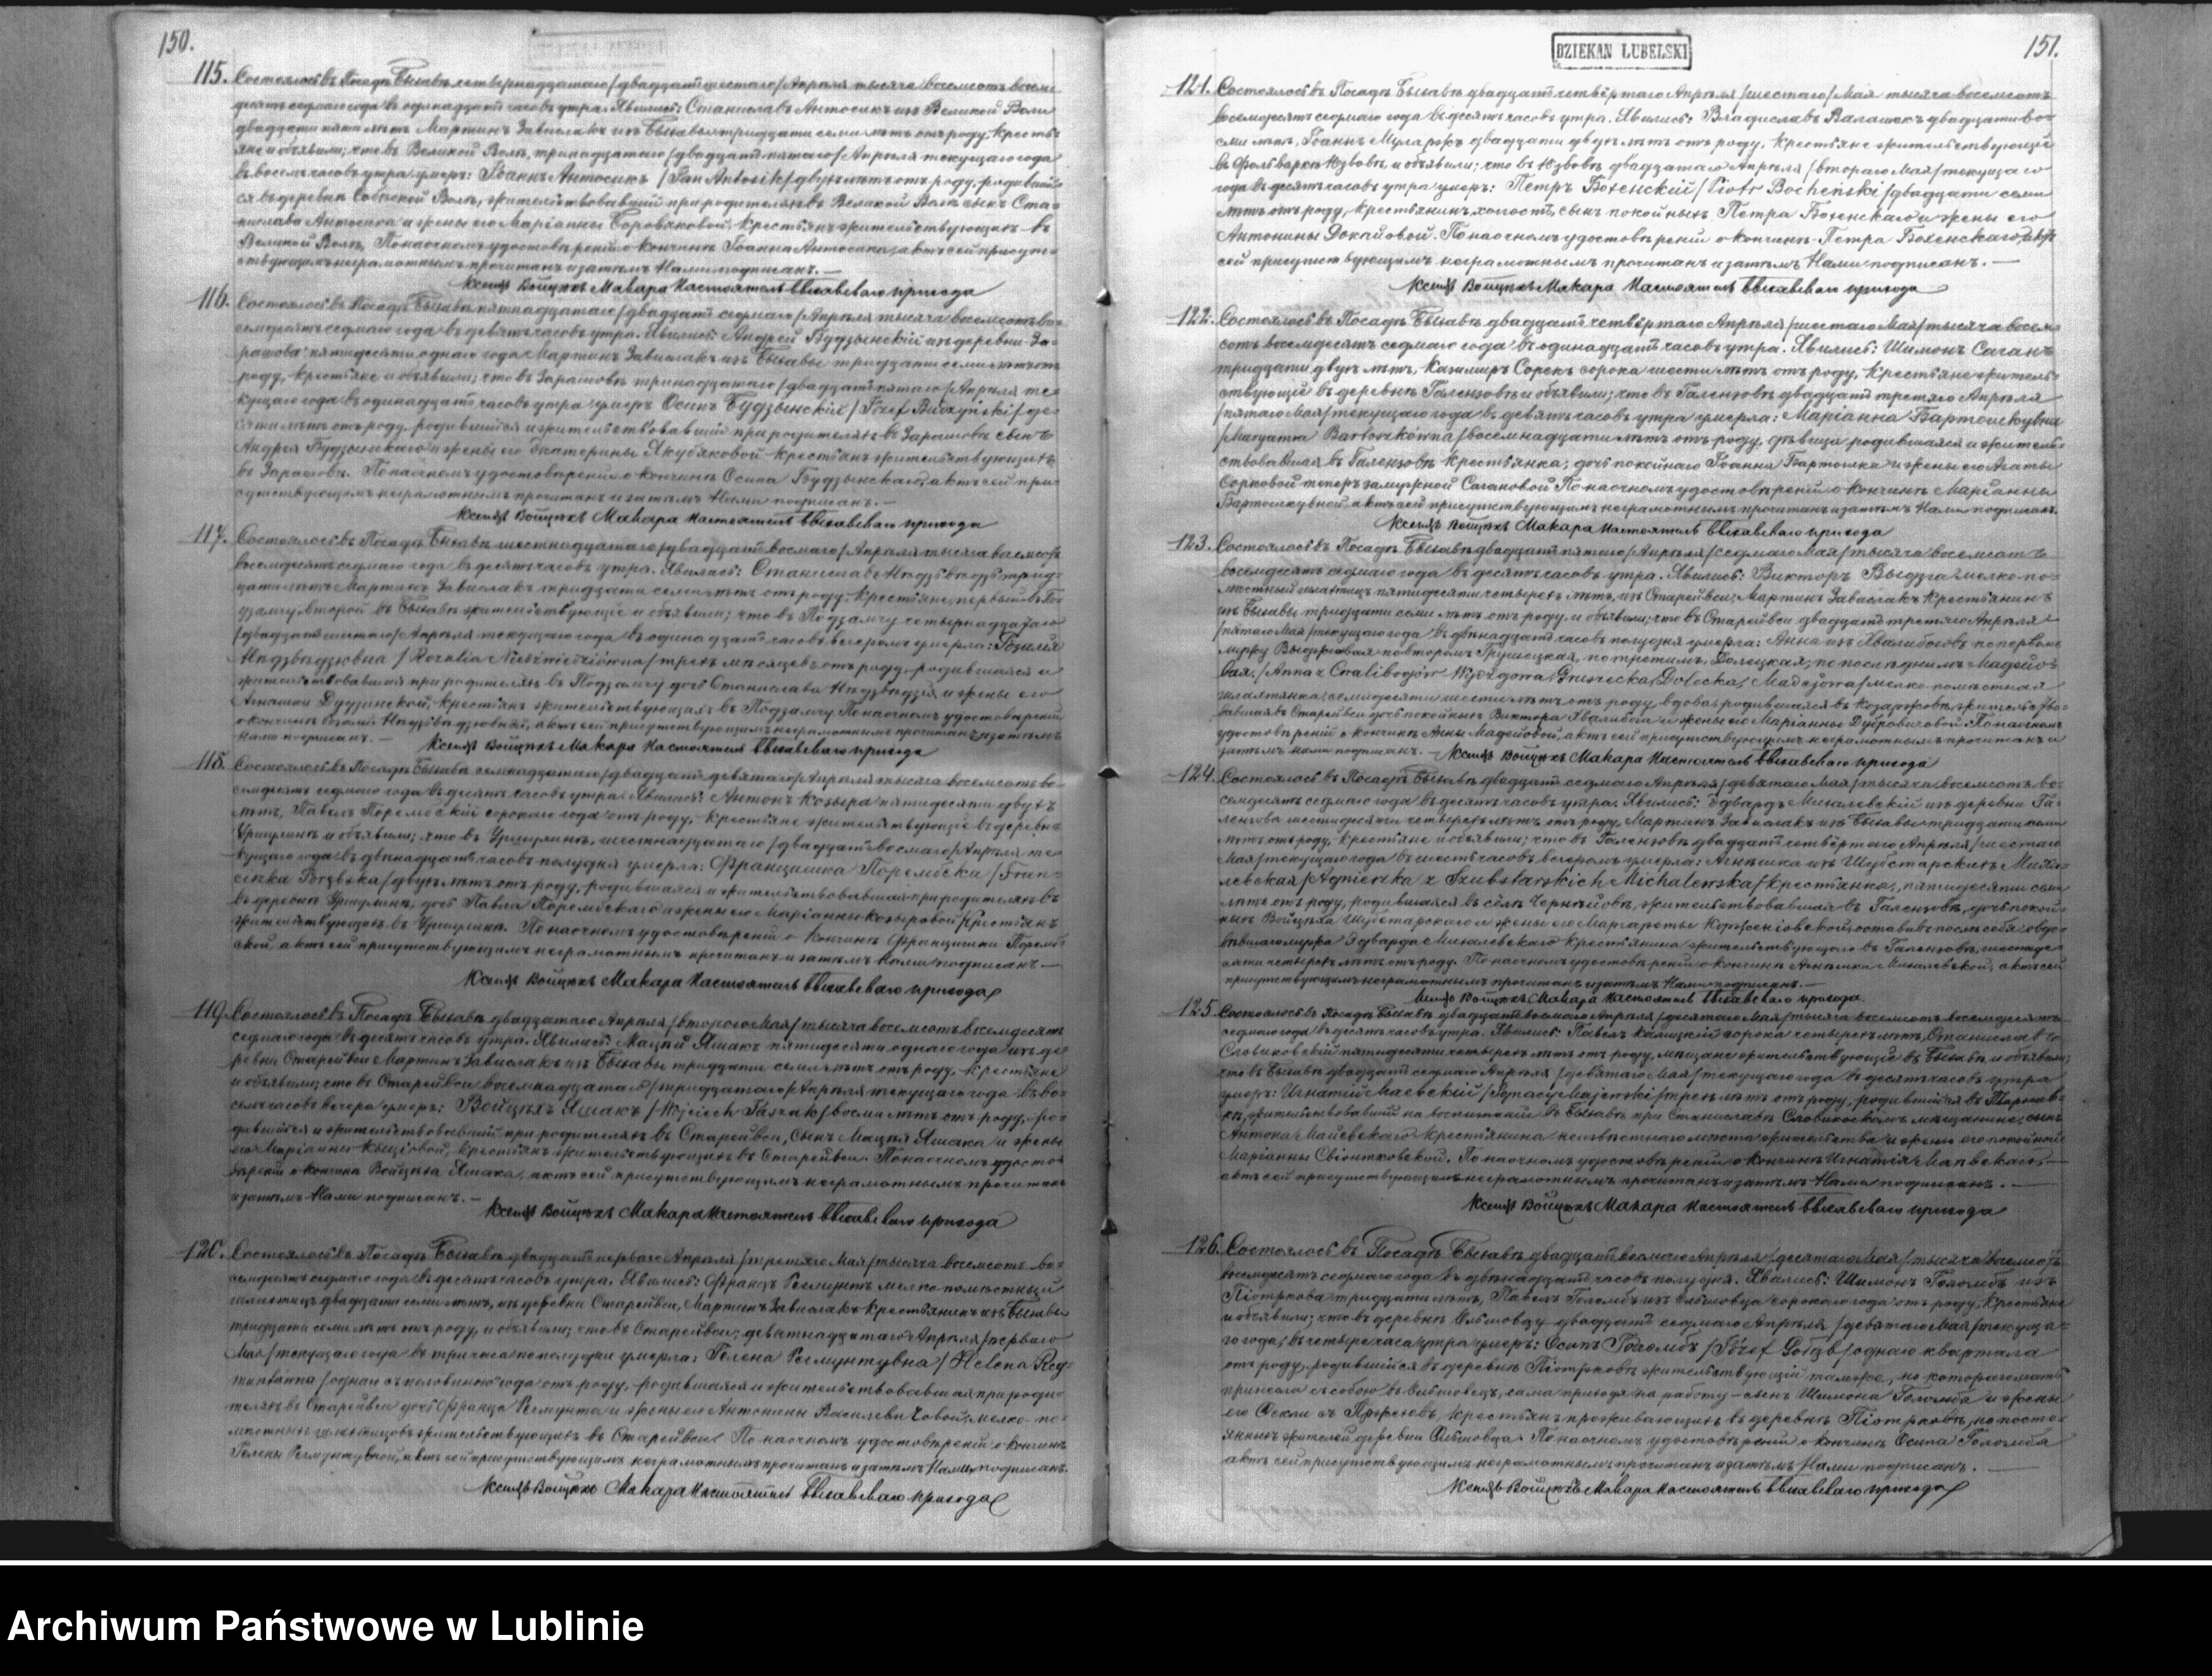 150.
115. Состоялось въ Посадѣ Быхавѣ четырнадцатаго /двадцать шестаго/ Апрѣля тысяча восемсотъ восемь
десятъ седмаго года въ одинадцать часовъ утра. Явились: Станиславъ Антосикъ изъ Великой Воли
двадцати пяти лѣтъ Мартинъ Завислакъ изъ Быхавы тридцати семи лѣтъ отъ роду, крестья-
яне и объявили; что въ Великой Волѣ, тринадцатаго /двадцать пятаго/ Апрѣля текущаго года
въ восемь часовъ утра умеръ: Іоаннъ Антосикъ /Jan Antosik/ двухъ лѣтъ отъ роду, родивший-
ся въ деревни Волѣ, жительствовавший при родителяхъ въ Великой Волѣ сынъ Ста-
нислава Антосика и жены его Маріанны Боровяковой крестьянъ жительствующихъ въ
Великой Волѣ. По наочномъ удостовѣреніи о кончинѣ Іоанна Антосика, актъ сей присут-
ствующимъ неграмотнымъ прочитанъ и затѣмъ Нами подписанъ. —
Ксендзъ Войцѣхъ Макара Настоятель Быхавскаго прихода
116. Состоялось въ Посадѣ Быхавѣ пятнадцатаго /двадцать седмаго/ Апрѣля тысяча восемсотъ во-
семдесятъ седмаго года въ девять часовъ утра. Явились: Андрей Будзынскій изъ деревни За-
рашова пятидесяти одного года Мартинъ Завислакъ изъ Быхавы тридцати семи лѣтъ отъ
роду, крестьяне и объявили; что въ Зарашовѣ тринадцатаго /двадцать пятаго/ Апрѣля те-
кущаго года въ одинадцать часовъ утра умеръ Осипъ Будзынскій /Józef Budzyński/ де-
сяти лѣтъ отъ роду, родившийся и жительствовавший при родителяхъ въ Зарашовѣ сынъ
Андрея Будзынскаго и жены его Екатерины Якубяковой крестьянъ жительствующихъ
въ Зарашовѣ. По наочномъ удостовѣреніи о кончинѣ Осипа Будзынскаго, актъ сей при-
сутствующимъ неграмотнымъ прочитанъ и затѣмъ Нами подписанъ. —
Ксендзъ Войцѣхъ Макара Настоятель Быхавскаго прихода
117. Состоялось въ Посадѣ Быхавѣ шестнадцатаго /двадцать восмаго/ Апрѣля тысяча восемсотъ
восемдесятъ седмаго года въ десять часовъ утра. Явились: Станиславъ Нѣдзвѣдзь трид-
цати лѣтъ Мартинъ Завислакъ тридцати семи лѣтъ отъ роду, крестьяне, первый въ По-
дзамчу второй въ Быхавѣ жительствующіе и объявили; что въ Подзамчу четырнадцатаго
/двадцать шестаго/ Апрѣля текущаго года въ одинадцать часовъ вечеромъ умерла: Розалія
Нѣдзвѣдзювна /Rozalia Niedźwiedziówna/ трехъ мѣсяцевъ отъ роду, родившаяся и
жительствовавшая при родителяхъ въ Подзамчу дочь Станислава Нѣдзвѣдзя и жены его
Агнешки Дудзинской, крестьянъ жительствующихъ въ Подзамчу. По наочномъ удостовѣреніи
о кончинѣ Розаліи Нѣдзвѣдзювной, актъ сей присутствующимъ неграмотнымъ прочитанъ и затѣмъ
Нами подписанъ. — Ксендзъ Войцѣхъ Макара Настоятель Быхавскаго прихода
118. Состоялось въ Посадѣ Быхавѣ семнадцатаго /двадцать девятаго/ Апрѣля тысяча восемсотъ во-
семдесятъ седмаго года въ десять часовъ утра. Явились: Антонъ Козыра пятидесяти двухъ
лѣтъ, Павелъ Порембскій сорока года отъ роду, крестьяне жительствующіе въ деревнѣ
Уршулинѣ и объявили; что въ Уршулинѣ, шестнадцатаго /двадцать восмаго/ Апрѣля те-
кущаго года въ двѣнадцать часовъ полудня умерла: Францишка Порембска /Fran-
ciszka Porębska/ двухъ лѣтъ отъ роду, родившаяся и жительствовавшая при родителяхъ въ
въ деревни Уршулинѣ, дочь Павла Порембскаго и жены его Маріанны Козыровой крестьянъ
жительствующихъ въ Уршулинѣ. По наочномъ удостовѣреніи о кончинѣ Францишки Порембс-
ской, актъ сей присутствующимъ неграмотнымъ прочитанъ и затѣмъ Нами подписанъ. —
Ксендзъ Войцѣхъ Макара Настоятель Быхавскаго прихода
119. Состоялось въ Посадѣ Быхавѣ двадцатаго Апрѣля /втораго Мая/ тысяча восемсотъ восемдесятъ
седмаго года въ десять часовъ утра. Явились: Мацѣй Яшакъ пятидесяти одного года изъ де-
ревни Старейвси Мартинъ Завислакъ изъ Быхавы тридцати семи лѣтъ отъ роду, крестьяне
и объявили; что въ Старейвси восемнадцатаго /тридцатаго/ Апрѣля текущаго года въ во-
семь часовъ вечера умеръ: Войцѣхъ Яшакъ /Wojciech Jaszak/ восми лѣтъ отъ роду, ро-
дившийся и жительствовавший при родителяхъ въ Старейвси, сынъ Мацѣя Яшака и жены
его Маріанны, крестьянъ жительствующихъ въ Старейвси. По наочномъ удосто-
вѣреніи о кончинѣ Войцѣха Яшака, актъ сей присутствующимъ неграмотнымъ прочитанъ
и затѣмъ Нами подписанъ. —
Ксендзъ Войцѣхъ Макара Настоятель Быхавскаго прихода
120. Состоялось въ Посадѣ Быхавѣ двадцать перваго Апрѣля /третяго Мая/ тысяча восемсотъ во-
семдесятъ седмаго года въ десять часовъ утра. Явились: Францъ Регмунтъ мелко-помѣстный
шляхтичъ двадцати семи лѣтъ, изъ деревни Старейвси, Мартинъ Завислакъ крестьянинъ изъ Быхавы
тридцати семи лѣтъ отъ роду, и объявили; что въ Старейвси; девятнадцатаго Апрѣля /перваго
Мая/ текущаго года въ три часа по полудни умерла: Гелена Регмунтувна /Helena Reg-
muntówna/ одного съ половиною года отъ роду, родившаяся и жительствовавшая при роди-
теляхъ въ Старейвси дочь Франца Регмунта и жены его Антонины Василевичовой, мелко-по-
мѣстныхъ шляхтичовъ жительствующихъ въ Старейвси. По наочномъ удостовѣреніи о кончинѣ
Гелены Регмунтувной, актъ сей присутствующимъ неграмотнымъ прочитанъ и затѣмъ Нами подписанъ.
Ксендзъ Войцѣхъ Макара Настоятель Быхавскаго прихода
DZIEKAN LUBELSKI
151.
121. Состоялось въ Посадѣ Быхавѣ двадцать четвёртаго Апрѣля /шестаго/ Мая тысяча восемсотъ
восемдесятъ седмаго года въ десять часовъ утра. Явились: Владиславъ Валашекъ двадцати во-
сми лѣтъ, Іоаннъ двадцати двухъ лѣтъ отъ роду, крестьяне жительствующіе
въ Фольваркѣ и объявили; что въ двадцатаго Апрѣля /втораго Мая/ текущаго
года въ десять часовъ утра умеръ: Петръ Бохенскій /Piotr Bocheński/ двадцати семи
лѣтъ отъ роду, крестьянинъ, холостъ, сынъ покойныхъ Петра Бохенскаго и жены его
Антонины. По наочномъ удостовѣреніи о кончинѣ Петра Бохенскаго, актъ
сей присутствующимъ неграмотнымъ прочитанъ и затѣмъ Нами подписанъ. —
Ксендзъ Войцѣхъ Макара Настоятель Быхавскаго прихода
122. Состоялось въ Посадѣ Быхавѣ двадцать четвёртаго Апрѣля /шестаго Мая/ тысяча восем-
сотъ восемдесятъ седмаго года въ одинадцать часовъ утра. Явились: Шимонъ Саганъ
тридцати двухъ лѣтъ, Казимиръ Сорекъ сорока шести лѣтъ отъ роду, крестьяне житель-
ствующіе въ деревнѣ Галензовѣ и объявили; что въ Галензовѣ двадцать третяго Апрѣля
/пятаго Мая/ текущаго года въ девять часовъ утра умерла: Маріанна Бартошкувна
/Maryanna Bartoszkówna/ восемнадцати лѣтъ отъ роду, дѣвица родившаяся и житель-
ствовавшая въ Галензовѣ крестьянка, дочь покойнаго Іоанна Бартошка и жены его Агаты
Сорковой теперъ замужной Сагановой. По наочномъ удостовѣреніи о кончинѣ Маріанны
Бартошкувной, актъ сей присутствующимъ неграмотнымъ прочитанъ и затѣмъ Нами подписанъ.
Ксендзъ Войцѣхъ Макара Настоятель Быхавскаго прихода
123. Состоялось въ Посадѣ Быхавѣ двадцать пятаго /Апрѣля/ седмаго Мая /тысяча восемсотъ
восемдесятъ седмаго года въ десять часовъ утра. Явились: Викторъ Выдзга мелко-по-
мѣстный шляхтичъ пятидесяти четырехъ лѣтъ, изъ Старейвси, Мартинъ Завислакъ крестьянинъ
изъ Быхавы тридцати семи лѣтъ отъ роду, и объявили; что въ Старейвси двадцать третяго Апрѣля
/пятаго Мая/ текущаго года въ двѣнадцать часовъ полудня умерла: Анна изъ Хвалибоговъ по первомъ
мужу Выджговая по второмъ Грушецкая, по третимъ Долецкая, по послѣднимъ Мадеіо-
вая. /Anna z Chalibogów Wydzgowa, Gruszecka, Dolecka, Madejowa/ мелко-помѣстная
шляхтянка, семидесяти шести лѣтъ отъ роду, вдова, родившаяся въ, жительство-
вавшая въ Старейвси дочь покойныхъ Виктора Хвалибога и жены его Маріанны. По наочномъ
удостовѣреніи о кончинѣ Анны Мадейовой, актъ сей присутствующимъ неграмотнымъ прочитанъ и
затѣмъ Нами подписанъ. — Ксендзъ Войцѣхъ Макара Настоятель Быхавскаго прихода
124. Состоялось въ Посадѣ Быхавѣ двадцать седмаго Апрѣля /девятаго Мая/ тысяча восемсотъ во-
семдесятъ седмаго года въ десять часовъ утра. Явились: Эдвардъ Михалевскій изъ деревни Га-
лензова шестидесяти четырехъ лѣтъ отъ роду, Мартинъ Завислакъ изъ Быхавы тридцати семи
лѣтъ отъ роду, крестьяне и объявили; что въ Галензовѣ двадцать четвёртаго Апрѣля /шестаго
Мая/ текущаго года въ шесть часовъ вечеромъ умерла: Агнѣшка изъ Шубстарскихъ Миха-
левская /Agnieszka z Szubstarskich Michalewska/ крестьянка, пятидесяти семи
лѣтъ отъ роду, родившаяся въ селѣ, жительствовавшая въ Галензовѣ, дочь покой-
ныхъ Войцѣха Шубстарскаго и жены его Маргареты, оставивъ послѣ себя овдо-
вѣвшаго мужа Эдварда Михалевскаго крестьянина жительствующаго въ Галензовѣ, шестиде-
сяти четырехъ лѣтъ отъ роду. По наочномъ удостовѣреніи о кончинѣ Агнѣшки Михалевской, актъ сей
присутствующимъ неграмотнымъ прочитанъ и затѣмъ Нами подписанъ. —
Ксендзъ Войцѣхъ Макара Настоятель Быхавскаго прихода.
125. Состоялось въ Посадѣ Быхавѣ двадцать восмаго Апрѣля /десятаго Мая/ тысяча восемсотъ восемдесятъ
седмаго года въ десять часовъ утра. Явились: Павелъ Калицкій сорока четырехъ лѣтъ, Станиславъ
Словиковскій пятидесяти четырехъ лѣтъ отъ роду, мѣщане жительствующіе въ Быхавѣ и объявили;
что въ Быхавѣ двадцать седмаго Апрѣля /девятаго Мая/ текущаго года въ десять часовъ утра
умеръ: Игнатій Маевскій /Ignacy Majewski/ трехъ лѣтъ отъ роду, родившийся въ
жительствовавший на воспитаніи въ Быхавѣ при Станиславѣ Словиковскомъ мѣщанине, сынъ
Антона Маіевскаго крестьянина неизвѣстнаго мѣста жительства и жены его покойной
Маріанны Свіонтковской. По наочномъ удостовѣреніи о кончинѣ Игнатія Маевскаго, —
актъ сей присутствующимъ неграмотнымъ прочитанъ и затѣмъ Нами подписанъ. —
Ксендзъ Войцѣхъ Макара Настоятель Быхавскаго прихода
126. Состоялось въ Посадѣ Быхавѣ двадцать восмаго Апрѣля /десятаго Мая/ тысяча восемсотъ
восемдесятъ седмаго года въ двѣнадцать часовъ полудня. Явились: Шимонъ Голомбъ изъ
Піотркова тридцати лѣтъ, Павелъ Голомбъ изъ Ольшовца сорока года отъ роду, крестьяне
и объявили; что въ деревнѣ Ольшовцу двадцать седмаго Апрѣля /девятаго Мая/ текуща-
го года, въ четыре часа утра умеръ: Осипъ Голомбъ /Józef Gołąb/ одного квартала
отъ роду, родившийся въ деревнѣ Піотрковѣ жительствующій таможе, но котораго мать
принесла съ собою въ Ольшовецъ, сама приходя на работу — сынъ Шимона Голомба и жены
его Феклы съ, крестьянъ проживающихъ въ деревнѣ Піотрковѣ, но посто-
янныхъ жителей деревни Ольшовца. По наочномъ удостовѣреніи о кончинѣ Осипа Голомба
актъ сей присутствующимъ неграмотнымъ прочитанъ и затѣмъ Нами подписанъ. —
Ксендзъ Войцѣхъ Макара Настоятель Быхавскаго прихода
Archiwum Państwowe w Lublinie